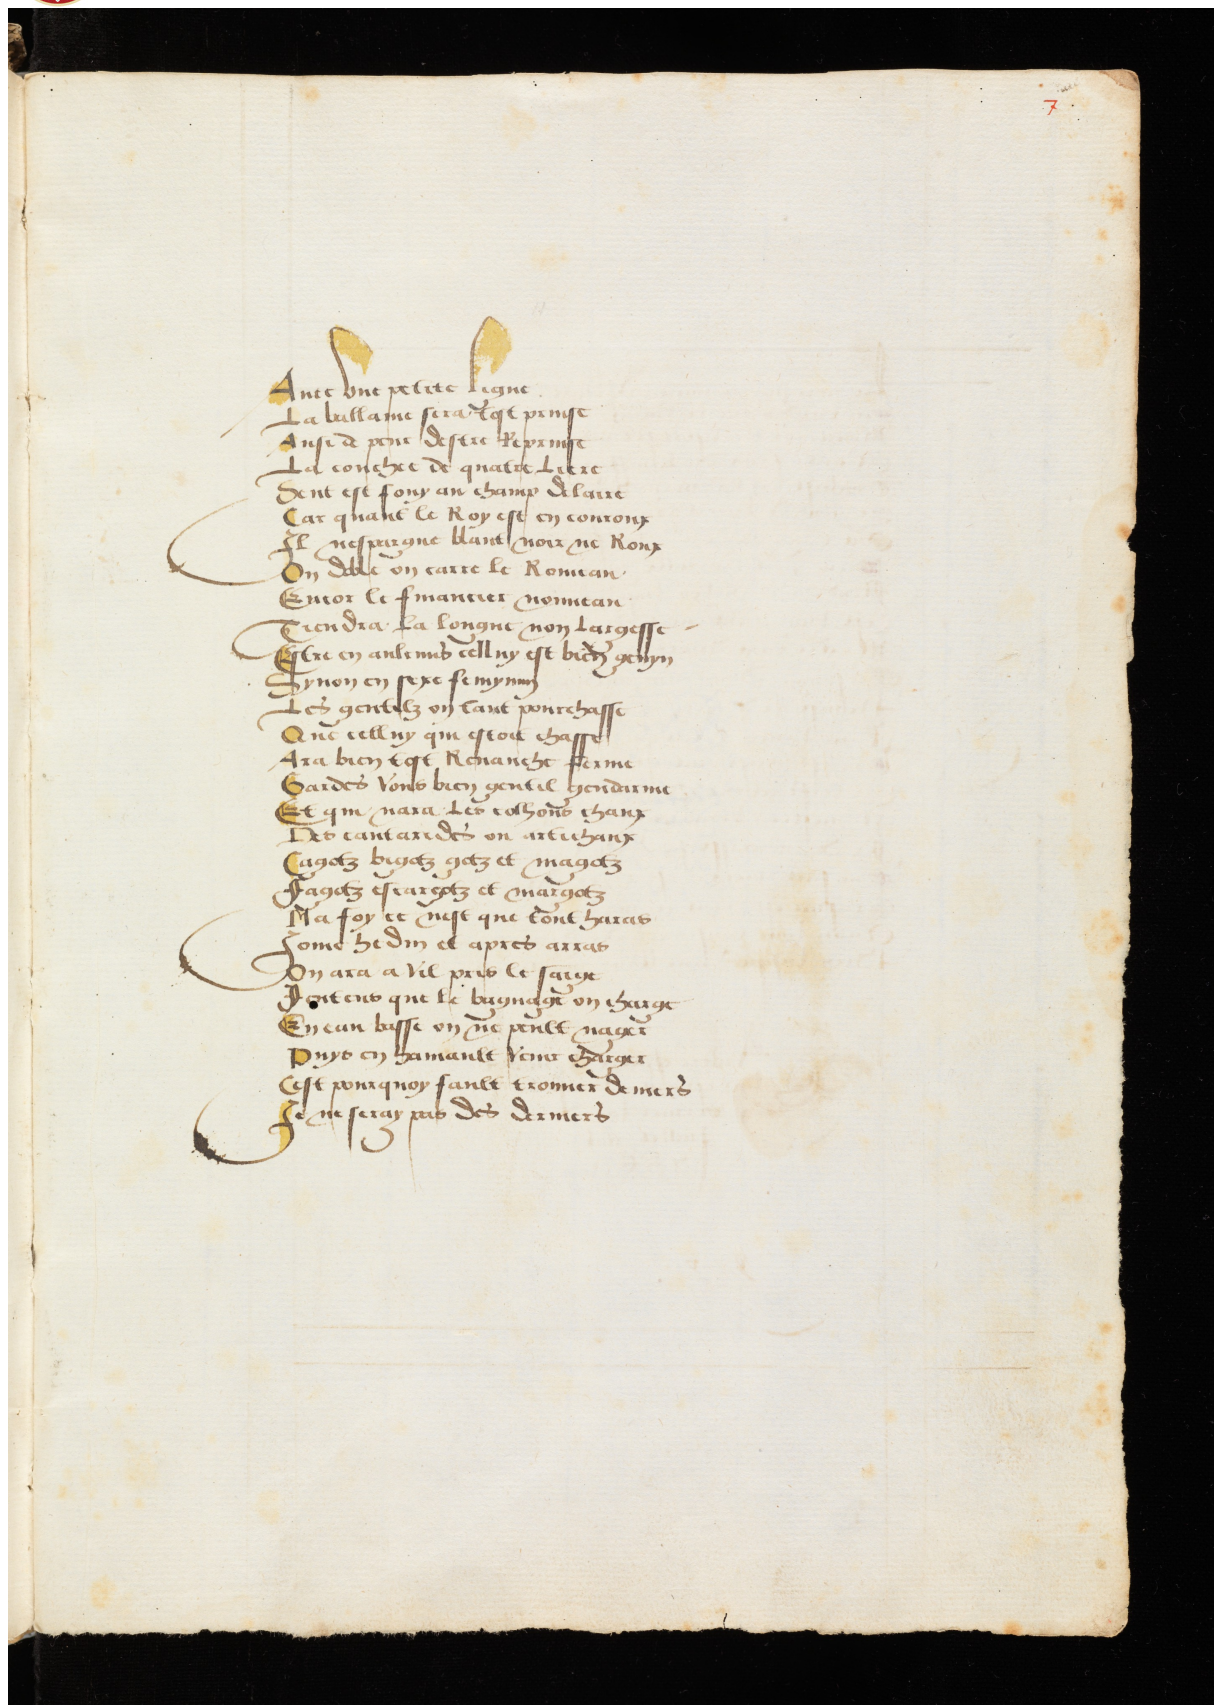 7
Auec vne petite ligne
La ballaine sera tost prinse
Ausi de peur destre Reprinse
La couchee de quatre Liere
Sent est fouy au champ delaire
Car quant le Roy est en couroux
Il nespargne blanc noir ne Roux
On doble on carre le Rouueau
Encor le financier nouueau
Tiendra La longue non Largesse
Estre en aulemus celluy est bien genyn
Synon en sexe femynin
Les gentilz on tant pourchasse
Que celluy qui estoit chasse
Ara bien tost Reuanche ferme
Gardes vous bien gentil gendarme
Et qui nara Les colhons chaux
Des cantarides ou artichaux
Cagotz bigotz gotz et magotz
Fagotz escargotz et margotz
Ma foy ce nest que tout haras
Iome hedin et apres arras
On ara a vil pris le sarge
Ientens que le bagnage on charge
En eau basse on ne peult nager
Puys en hainault venir charger
Cest pourquoy fault trouuer deniers
Ie ne seray pas des derniers